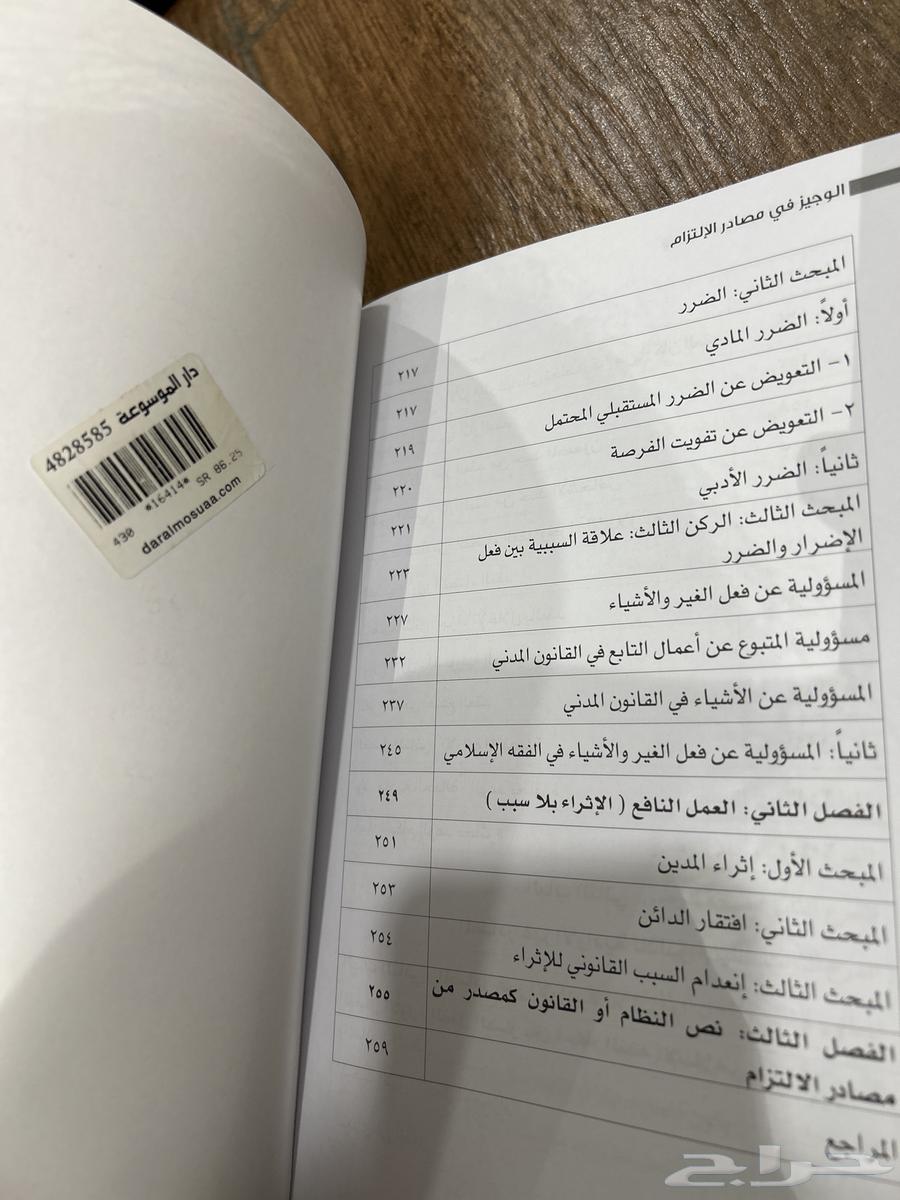 الوجيز في مصادر الإلتزام
المبحث الثاني: الضرر ٢١٧
أولاً: الضرر المادي ٢١٧
١- التعويض عن الضرر المستقبلي المحتمل ٢١٩
٢- التعويض عن تفويت الفرصة ٢٢٠
ثانياً: الضرر الأدبي ٢٢١
المبحث الثالث: الركن الثالث: علاقة السببية بين فعل
الإضرار والضرر ٢٢٣
المسؤولية عن فعل الغير والأشياء ٢٢٧
مسؤولية المتبوع عن أعمال التابع في القانون المدني ٢٣٢
المسؤولية عن الأشياء في القانون المدني ٢٣٧
ثانياً: المسؤولية عن فعل الغير والأشياء في الفقه الإسلامي ٢٤٥
الفصل الثاني: العمل النافع ( الإثراء بلا سبب ) ٢٤٩
المبحث الأول: إثراء المدين ٢٥١
المبحث الثاني: افتقار الدائن ٢٥٣
المبحث الثالث: إنعدام السبب القانوني للإثراء ٢٥٤
الفصل الثالث: نص النظام أو القانون كمصدر من
مصادر الالتزام ٢٥٥
المراجع ٢٥٩
دار الموسوعة 4828585
430 *16414* SR 86.25
daralmosuaa.com
حراج